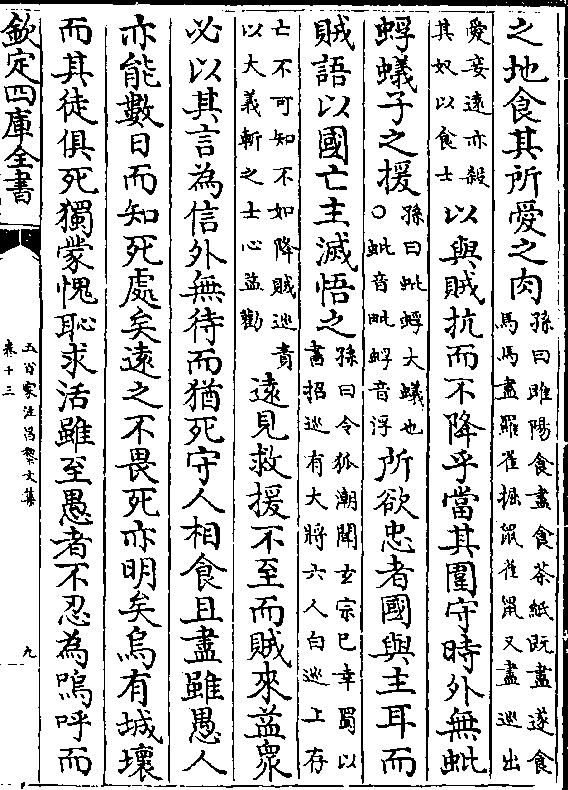 之地食其所愛之肉孫曰睢陽食盡食茶紙既盡遂食
馬馬盡羅雀掘鼠雀鼠又盡巡出
愛妾遠亦殺
其奴以食士以與賊抗而不降乎當其圍守時外無蚍
蜉蟻子之援孫曰蚍蜉大蟻也
○蚍音毗蜉音浮所欲忠者國與主耳而
賊語以國亡主滅悟之孫曰令狐潮聞玄宗已幸蜀以
書招巡有大將六人白巡上存
亡不可知不如降賊巡責
以大義斬之士心益勸遠見救援不至而賊來益衆
必以其言為信外無待而猶死守人相食且盡雖愚人
亦能數日而知死處矣遠之不畏死亦明矣烏有城壞
而其徒俱死獨蒙愧恥求活雖至愚者不忍為嗚呼而
欽定四庫全書
五百家注昌黎文集
卷十三
九